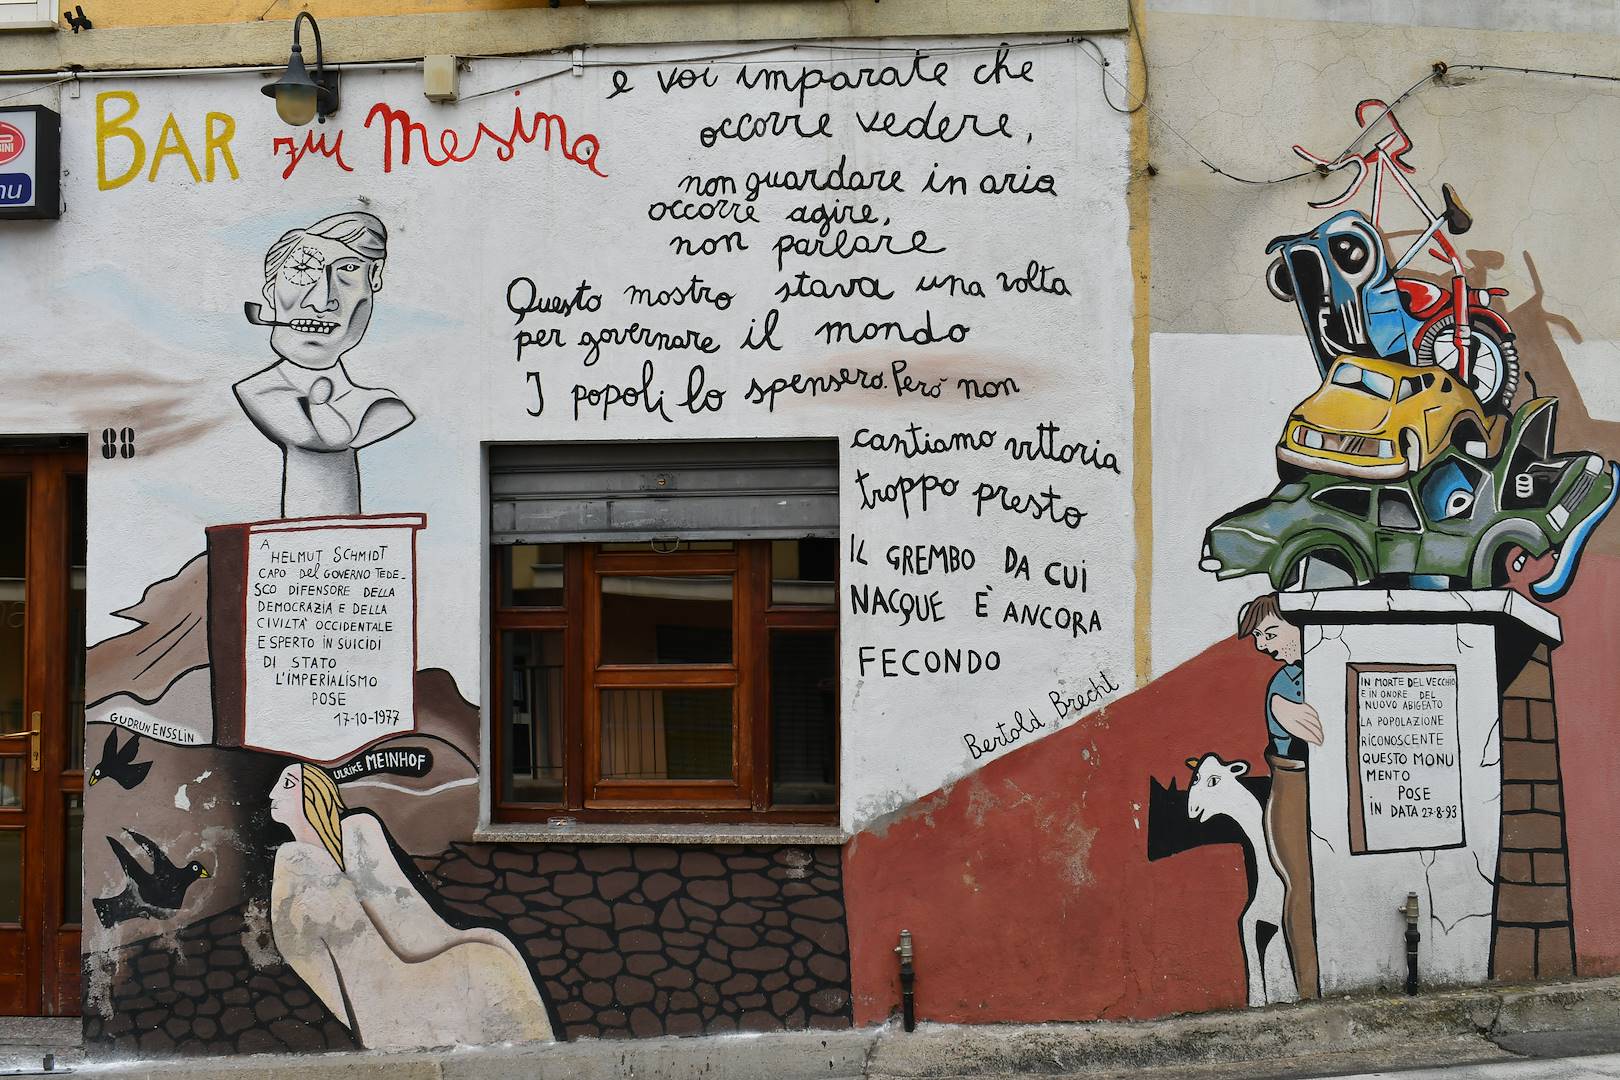 BINI
nu
BAR ziu Mesina
88
e voi imparate che
occorre vedere,
non guardare in aria
occorre agire,
non parlare
Questo mostro stava una volta
per governare il mondo
I popoli lo spensero. Però non
cantiamo vittoria
troppo presto
IL GREMBO DA CUI
NACQUE È ANCORA
FECONDO
Bertold Brecht
A
HELMUT SCHMIDT
CAPO del GOVERNO TEDE-
SCO DIFENSORE DELLA
DEMOCRAZIA E DELLA
CIVILTA' OCCIDENTALE
E SPERTO IN SUICIDI
DI STATO
L'IMPERIALISMO
POSE
17-10-1977
GUDRUN ENSSLIN
ULRIKE MEINHOF
IN MORTE DEL VECCHIO
E IN ONORE DEL
NUOVO ABIGEATO
LA POPOLAZIONE
RICONOSCENTE
QUESTO MONU
MENTO
POSE
IN DATA 27-8-93